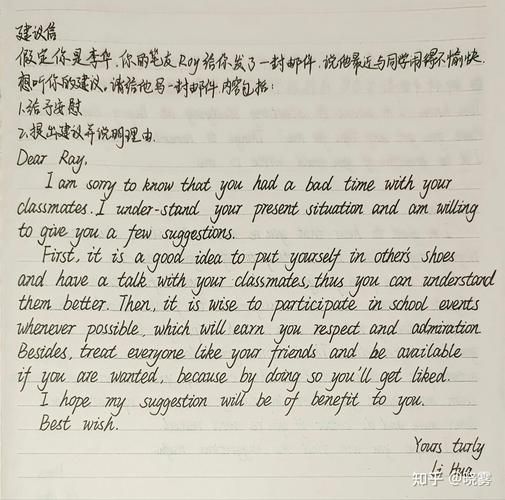 建议信
假定你是李华,你的笔友Ray给你发了一封邮件,说他最近与同学闹得不愉快.
想听你的建议,请给他写一封邮件,内容包括:
1.给予安慰
2.提出建议并说明理由.
Dear Ray,
I am sorry to know that you had a bad time with your
classmates. I under-stand your present situation and am willing
to give you a few suggestions.
First, it is a good idea to put yourself in other's shoes
and have a talk with your classmates, thus you can understand
them better. Then, it is wise to participate in school events
whenever possible, which will earn you respect and admiration
Besides, treat everyone like your friends and be available
if you are wanted, because by doing so you'll get liked.
I hope my suggestion will be of benefit to you.
Best wish.
Yours turly
Li Hua
知乎 @晓雾